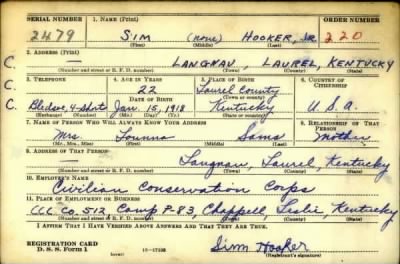 SERIAL NUMBER 1. NAME (Print) ORDER NUMBER
2479 SIM (none) HOOKER, JR. 220
(First) (Middle) (Last)
2. ADDRESS (Print)
C. — LANGNAU, LAUREL, KENTUCKY
(Number and street or R. F. D. number) (Town) (County) (State)
3. TELEPHONE 4. AGE IN YEARS 5. PLACE OF BIRTH 6. COUNTRY OF CITIZENSHIP
C. — 22 Laurel County
DATE OF BIRTH
C. Bledsoe, 4-shorts Jan. 15, 1918 Kentucky U.S.A.
(Exchange) (Number) (Mo.) (Day) (Yr.) (State or country)
7. NAME OF PERSON WHO WILL ALWAYS KNOW YOUR ADDRESS 8. RELATIONSHIP OF THAT PERSON
Mrs Sams Mother
(Mr., Mrs., Miss) (First) (Middle) (Last)
9. ADDRESS OF THAT PERSON
— Langnau, Laurel, Kentucky
(Number and street or R. F. D. number) (Town) (County) (State)
10. EMPLOYER'S NAME
Civilian Conservation Corps
11. PLACE OF EMPLOYMENT OR BUSINESS
CCC Co. 512 Camp P-83, Chappell, Leslie, Kentucky
(Number and street or R. F. D. number) (Town) (County) (State)
I AFFIRM THAT I HAVE VERIFIED ABOVE ANSWERS AND THAT THEY ARE TRUE.
REGISTRATION CARD
D. S. S. Form 1 Sim Hooker
(Registrant's signature)